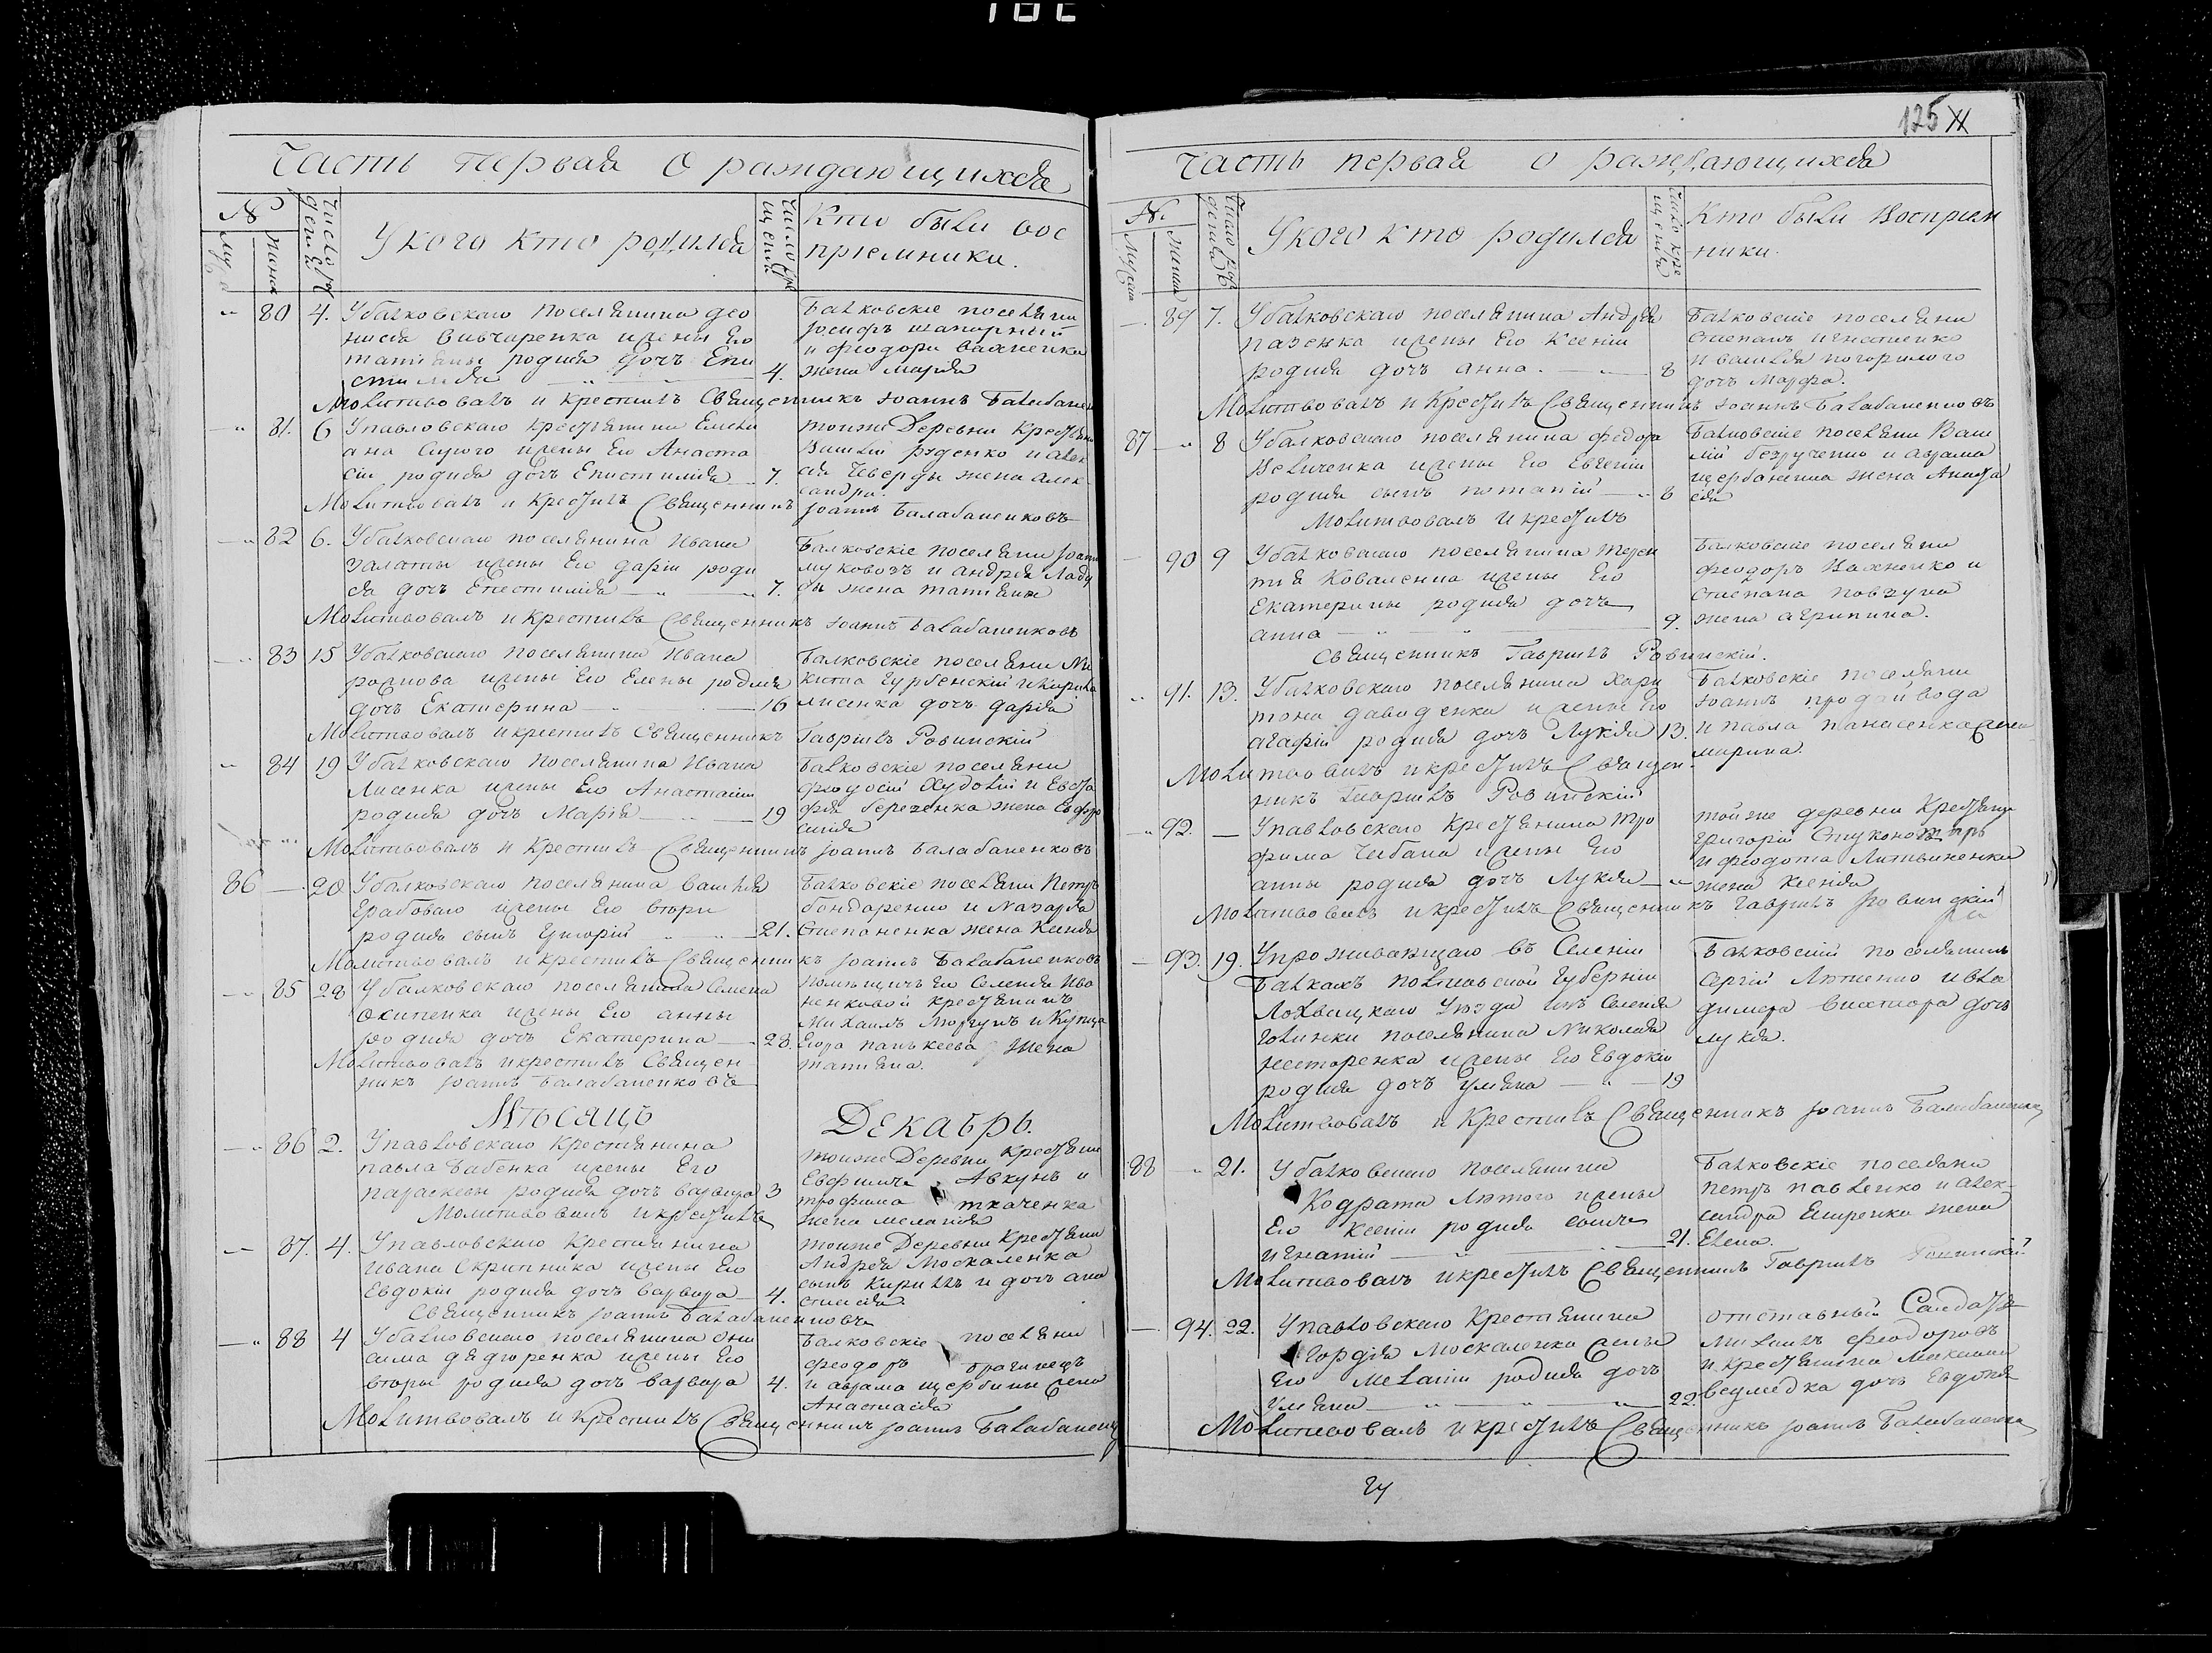 125
Часть первая О раждающихся
№
Муж
Женс
Число рож
дения
У кого кто родился
Число кре
щения
Кто были вос
приемники.
80 4. У балковскаго поселянина Део
нисія Вивчаренка и жены Его
татіаны родися дочь Епи
стимія 4.
Балковскіе поселяни
Іосифъ шапорный
и феодора Вахненка
жена марія
Молитвовалъ и крестилъ Священникъ Іоаннъ Балабанен
81. 6 У павловскаго крестьянина Емели
ана Сирого и жены Его Анаста
сіи родися дочь Епистимія 7.
тоиже Деревни крестьяни
Василій руденко и алек
сія Чеверды жена алек
сандра.
Молитвовалъ и крестилъ Священникъ Іоаннъ Балабаненковъ
82 6. У балковскаго поселянина Ивана
Залаты и жены Его даріи роди
ся дочь Епестимія 7.
Балковскіе поселяни Іоанн
муковозъ и андрея Лады
ды жена татіана
Молитвовалъ и крестилъ Священникъ Іоаннъ Балабаненковъ
83 15 У балковскаго поселянина Ивана
и жены Его Елены родися
дочь Екатерина 16
Балковскіе поселяни Ни
кита Гурбенскій и Кирила
лисенка дочь дарія
Молитвовалъ и крестилъ Священникъ Гавріилъ Ровинскій
84 19 У балковскаго поселянина Ивана
Лисенка и жены Его Анастасіи
родися дочь Марія 19
Балковскіе поселяни
феодосій Худолій и Евста
фія березенка жена Евфро
синія
Молитвовалъ и крестилъ Священникъ Іоаннъ Балабаненковъ
86 20 У балковскаго поселянина василія
Грабоваго и жены Его
родися сынъ Григорій 21.
Балковскіе поселяни Петръ
бондаренко и Назарія
Степаненка жена Ксенія
Молитвовалъ и крестилъ Священникъ Іоаннъ Балабаненковъ
85 28 У балковскаго поселянина Семена
Окипенка и жены Его анны
родися дочь Екатерина 28.
помѣщичьего Селенія Ива
ненковой крестьянинъ
Михаилъ Моргунъ и Купца
Егора панькеева жена
татіана.
Молитвовалъ и крестилъ Священ
никъ Іоаннъ Балабаненковъ
Мѣсяцъ Декабрь.
86 2. У павловскаго крестьянина
павла бабенка и жены Его
параскевы родися дочь варвара 3
тоиже Деревни крестьяни
Авкунъ и
трофима ткаченка
жена меланія
Молитвовалъ и крестилъ
87. 4. У павловскаго крестьянина
Ивана Скрипника и жены Его
Евдокіи родися дочь варвара 4.
тоиже Деревни крестьяни
Андрея Москаленка
сынъ Кирилъ и дочь ана
стасія.
Священникъ Іоаннъ Балабаненковъ
88 4 У балковскаго поселянина Они
сима дядюренка и жены Его
родися дочь варвара 4.
Балковскіе поселяни
феодоръ брагинецъ
и аврама щербины жена
Анастасія
Молитвовалъ и крестилъ Священникъ Іоаннъ Балабаненк
Часть первая о раждающихся
№.
Мужска
Женска
Число рож
дения
У кого кто родился
Число кре
щения
Кто были восприем
ники.
89 7. У балковскаго поселянина Андрея
пазенка и жены Его Ксеніи
родися дочь анна. 8
Балковскіе поселяни
Стефанъ игнатенко
и василія погорилого
дочь Марфа.
Молитвовалъ и крестилъ Священникъ Іоаннъ Балабаненковъ
87 8 У балковскаго поселянина федора
Величенка и жены Его Евгеніи
родися сынъ потапій 8
Балковскіе поселяни Васи
лій безрученко и аврама
щербанина жена Анаста
сія
Молитвовалъ и крестилъ
90 9 У балковскаго поселянина Терен
тія Коваленка и жены Его
Екатерины родися дочь
анна 9.
Балковскіе поселяни
феодоръ Вахненко и
Степана повзуна
жена агрипина.
Священникъ Гавріилъ Ровинскій.
91. 13. У балковскаго поселянина Хари
тона давиденка и жены Его
агафіи родися дочь Лукія 13.
Балковскіе поселяни
Іоаннъ продайвода
и павла панасенка жена
марина.
Молитвовалъ и крестилъ Священ
никъ Гавріилъ Ровинскій
92. У павловскаго крестьянина Тро
фима Чабана и жены Его
анны родися дочь Лукія
тойже деревни крестьяни
григорій
и феодота Литвиненка
жена ксенія
Молитвовалъ и крестилъ Священникъ Гавріилъ Ровинскій
93. 19. У проживающаго въ Селеніи
Балкахъ полтавской губерніи
Лохвицкаго уѣзда изъ Селенія
голинки поселянина Николая
несторенка и жены Его Евдокіи
родися дочь Уліяна 19
Балковскій поселянинъ
Сергій Лютенко и вла
димера висатора дочь
лукія.
Молитвовалъ и крестилъ Священникъ Іоаннъ Балабаненк
88 21. У балковскаго поселянина
Кодрата Лютого и жены
Его Ксеніи родися сынъ
игнатій 21.
Балковскіе поселяни
петръ павленко и алек
сандра Ширенка жена
Елена.
Молитвовалъ и крестилъ Священникъ Гавріилъ Ровинскій
94. 22. У павловскаго крестьянина
Гордія Москаленка жены
Его Меланіи родися дочь
Уліяна 22.
отставный Салдатъ
Михаилъ феодоровъ
и крестьянина Максима
дочь Евдокія
Молитвовалъ и крестилъ Священникъ Іоаннъ Балабаненка